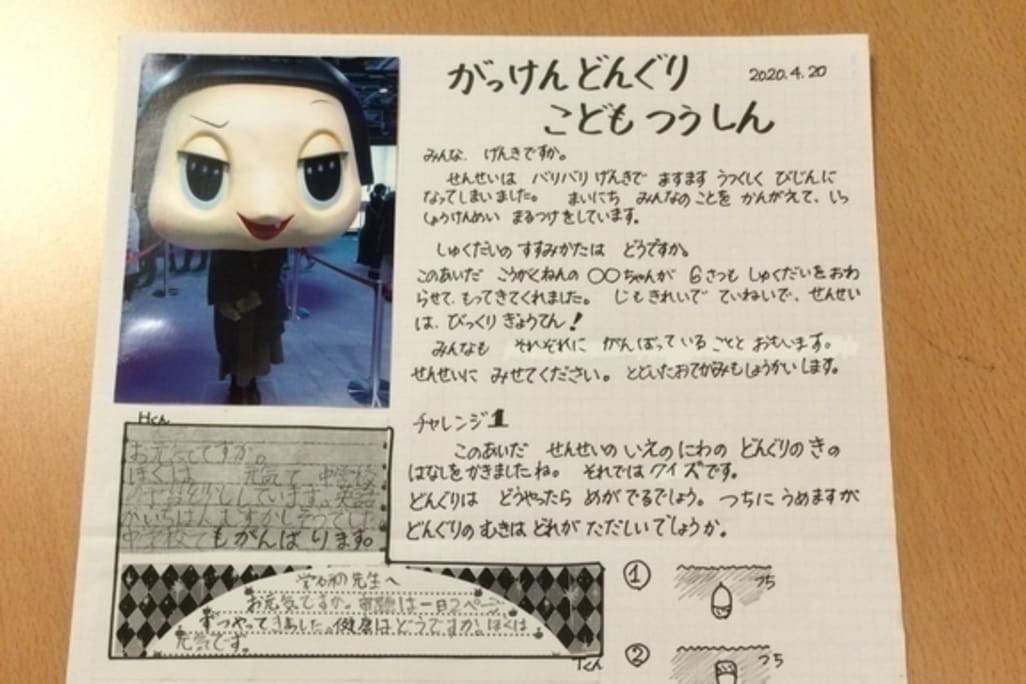 がっけんどんぐり
2020.4.20
こどもつうしん
みんな、げんきですか。
せんせいは バリバリげんきで ますます うつくしく びじんに
なってしまいました。 まいにち みんなのことを かんがえて、いっ
しょうけんめい まるつけをしています。
しゅくだいの すすみかたは どうですか。
このあいだ こうがくねんの ○○ちゃんが 6さつも しゅくだいをおわ
らせて、もってきてくれました。 じもきれいで ていねいで、せんせい
は、びっくりぎょうてん!
みんなも それぞれに がんばっていることと おもいます。
せんせいに みせてください。 とどいたおてがみもしょうかいします。
Hくん
お元気ですか。
ぼくは 元気で 中学校
中学校でもがんばります。
学研の先生へ
お元気ですか。宿題は一日2ページ
ずつやってきました。健康はどうですか。ぼくは
元気です。
Tくん
チャレンジ1
このあいだ せんせいの いえの にわの どんぐりの きの
はなしをかきましたね。 それではクイズです。
どんぐりは どうやったら めがでるでしょう。 つちに うめますが
どんぐりの むきは どれが ただしいでしょうか。
①
つち
②
つち